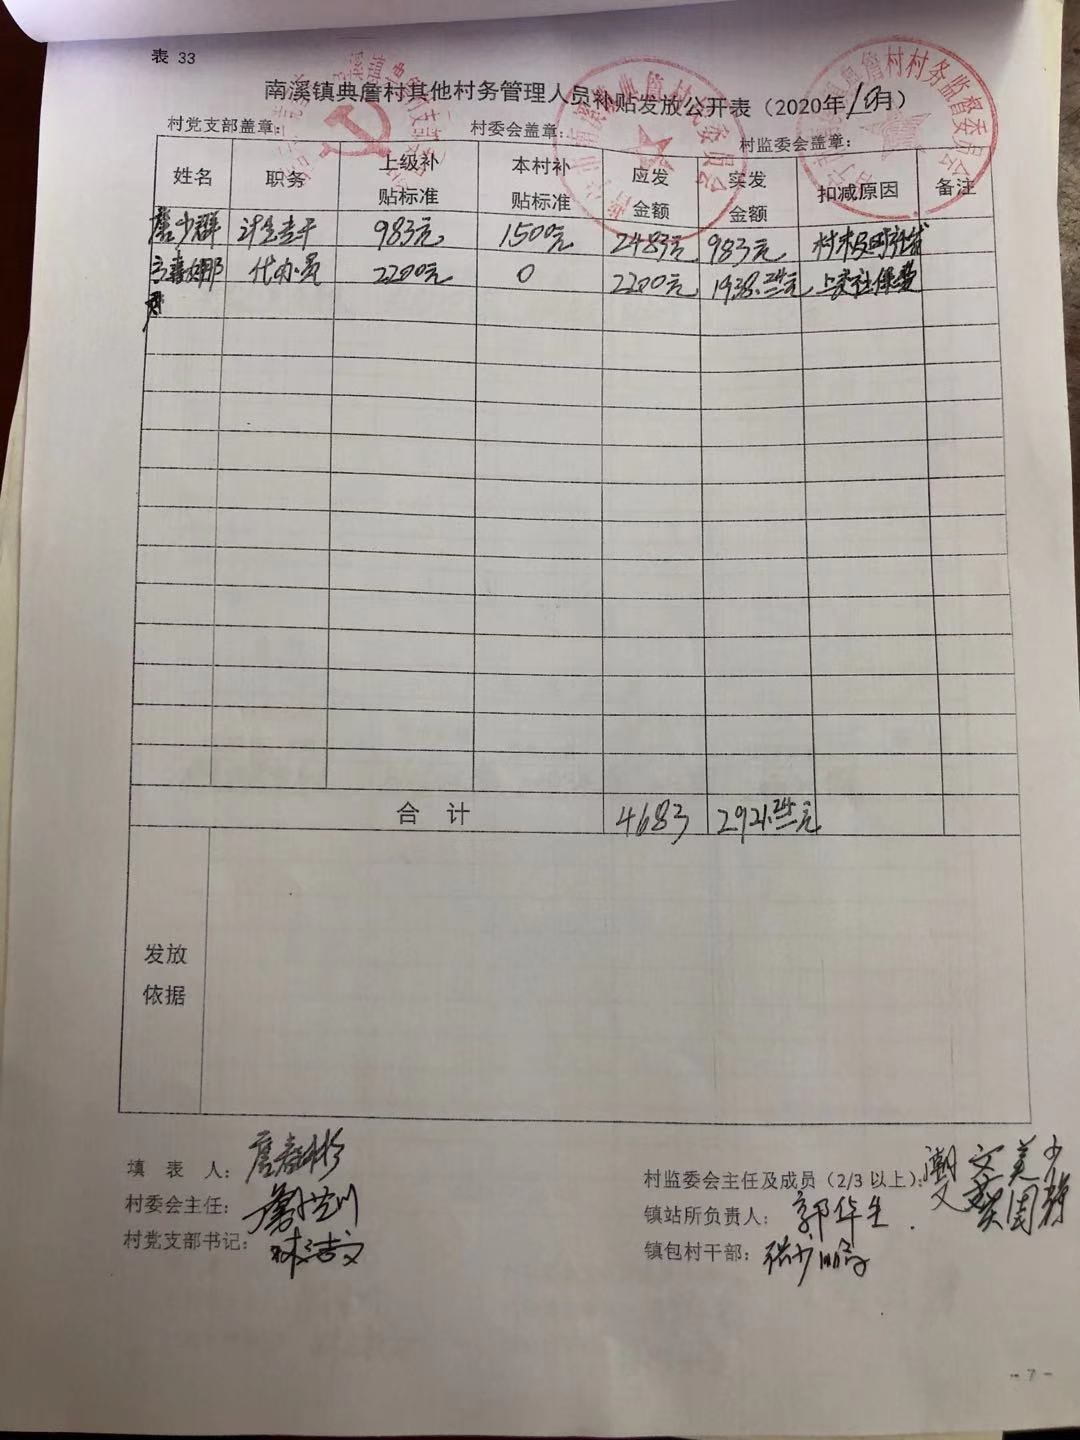 表 33
南溪镇典詹村其他村务管理人员补贴发放公开表（2020年10月）
村党支部盖章： 村委会盖章： 村监委会盖章：
姓名 职务 上级补贴标准 本村补贴标准 应发金额 实发金额 扣减原因 备注
詹少群 计生专干 983元 1500元 2483元 983元
代办员 2200元 0 2200元 1938.24元 上交社保费
合 计 4683 2921.24元
发放
依据
填 表 人：詹春彬
村委会主任：
村党支部书记：
村监委会主任及成员（2/3 以上）：
镇站所负责人：郭华生
镇包村干部：
- 7 -